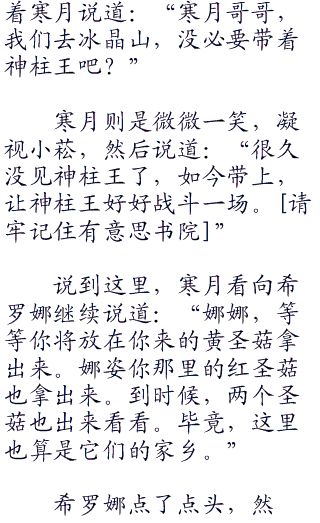 着寒月说道：“寒月哥哥，
我们去冰晶山，没必要带着
神柱王吧？”
寒月则是微微一笑，凝
视小菘，然后说道：“很久
没见神柱王了，如今带上，
让神柱王好好战斗一场。[请
牢记住有意思书院]”
说到这里，寒月看向希
罗娜继续说道：“娜娜，等
等你将放在你来的黄圣菇拿
出来。娜姿你那里的红圣菇
也拿出来。到时候，两个圣
菇也出来看看。毕竟，这里
也算是它们的家乡。”
希罗娜点了点头，然